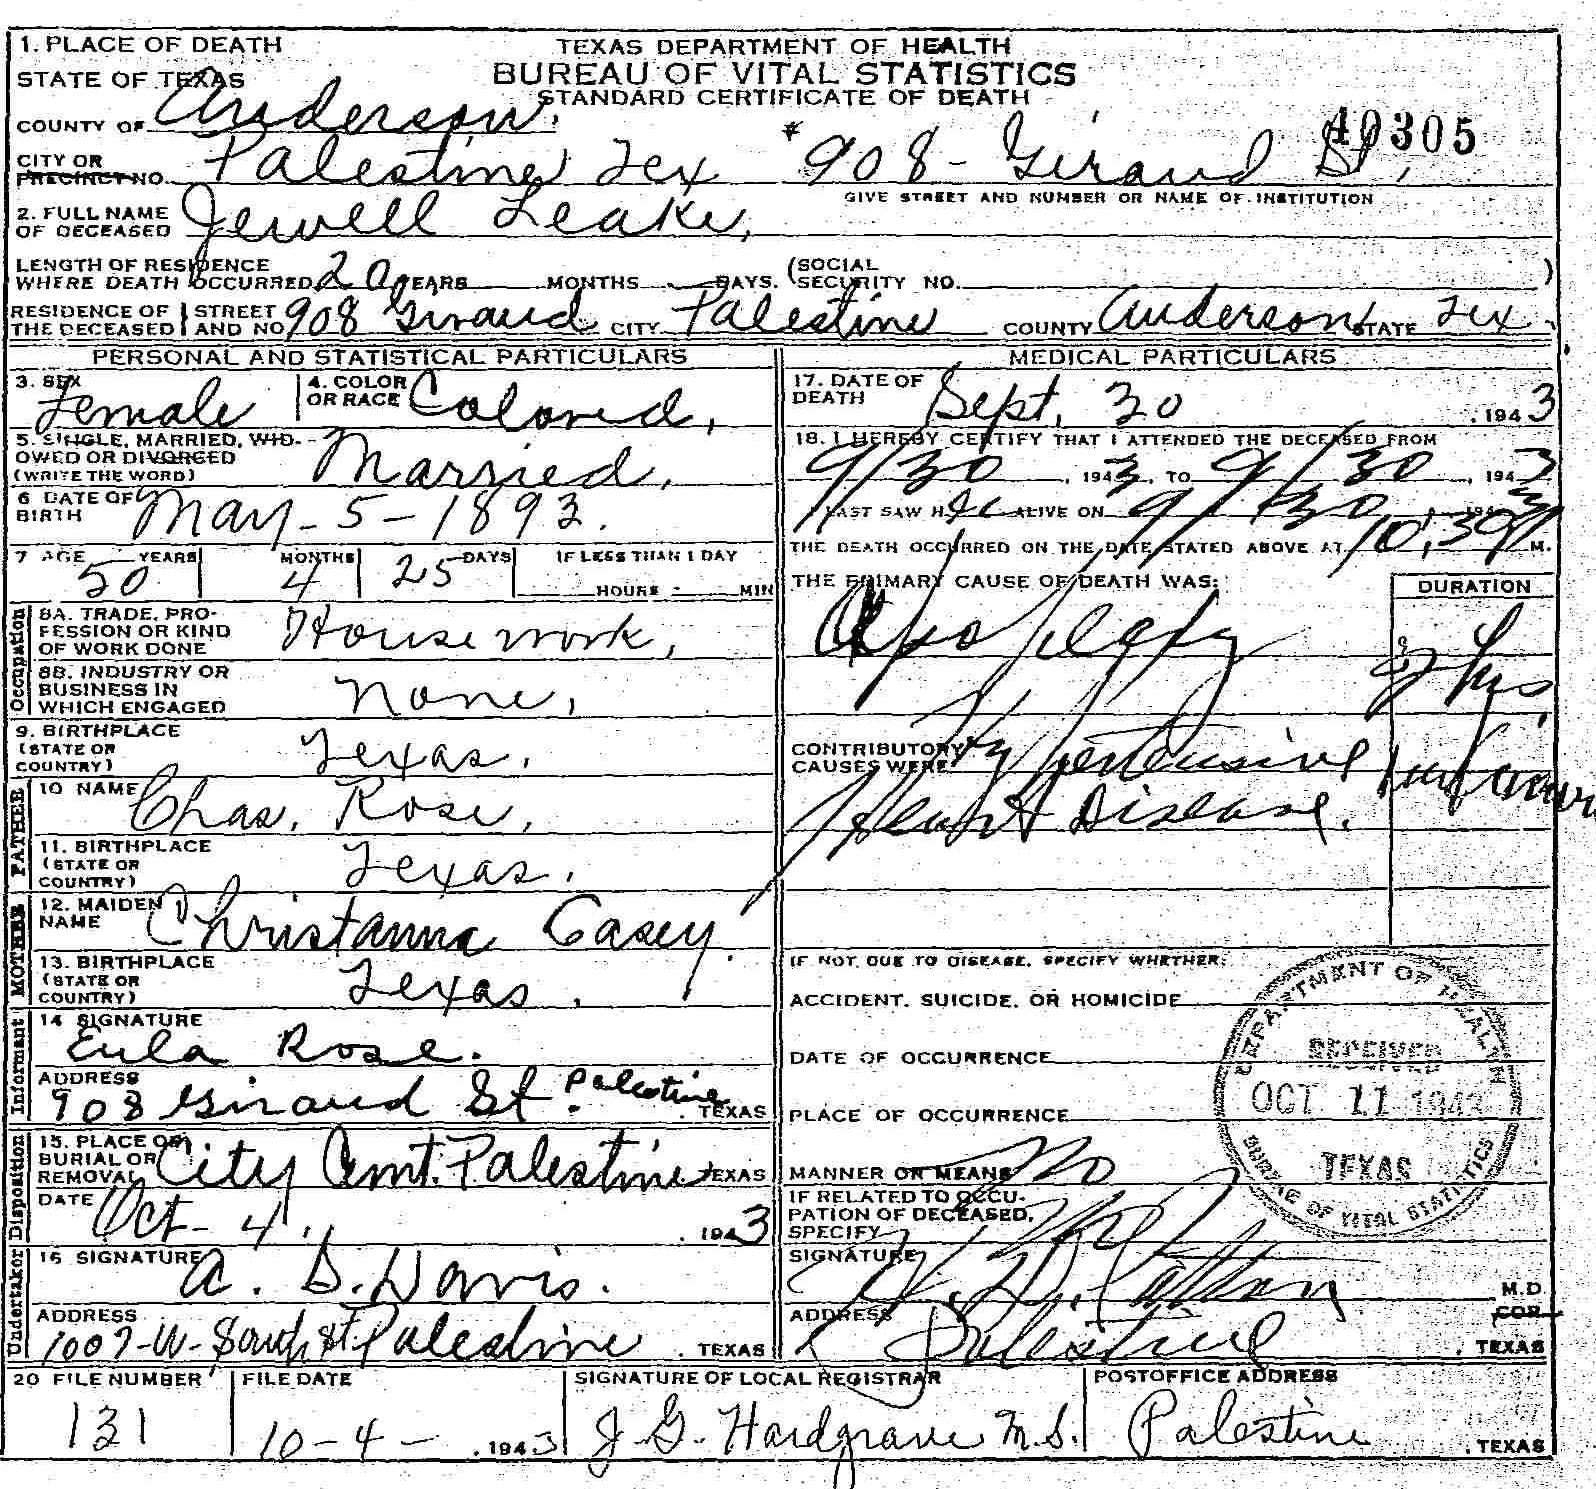 1. PLACE OF DEATH
TEXAS DEPARTMENT OF HEALTH
STATE OF TEXAS
BUREAU OF VITAL STATISTICS
STANDARD CERTIFICATE OF DEATH
COUNTY OF Anderson.
40305
CITY OR PRECINCT NO. Palestine Tex 908 - Giraud St,
GIVE STREET AND NUMBER OR NAME OF INSTITUTION
2. FULL NAME OF DECEASED Jewell Leake,
LENGTH OF RESIDENCE WHERE DEATH OCCURRED 20 YEARS MONTHS DAYS. (SOCIAL SECURITY NO. )
RESIDENCE OF THE DECEASED STREET AND NO 908 Giraud CITY Palestine COUNTY Anderson STATE Tex.
PERSONAL AND STATISTICAL PARTICULARS
3. SEX Female 4. COLOR OR RACE Colored,
5. SINGLE, MARRIED, WIDOWED OR DIVORCED (WRITE THE WORD) Married,
6 DATE OF BIRTH May - 5 - 1893.
7 AGE 50 YEARS 4 MONTHS 25 DAYS IF LESS THAN 1 DAY HOURS MIN
Occupation
8A. TRADE, PROFESSION OR KIND OF WORK DONE House work,
8B. INDUSTRY OR BUSINESS IN WHICH ENGAGED None,
9. BIRTHPLACE (STATE OR COUNTRY) Texas.
FATHER
10 NAME Chas. Rose,
11. BIRTHPLACE (STATE OR COUNTRY) Texas.
MOTHER
12. MAIDEN NAME Christanna Casey.
13. BIRTHPLACE (STATE OR COUNTRY) Texas.
Informant
14 SIGNATURE Eula Rose.
ADDRESS 908 Giraud St. Palestine, TEXAS
Disposition
15. PLACE OF BURIAL OR REMOVAL City Cmt. Palestine, TEXAS
DATE Oct - 4, 1943
Undertaker
16 SIGNATURE A. D. Davis.
ADDRESS 1007 - W - South St. Palestine, TEXAS
MEDICAL PARTICULARS
17. DATE OF DEATH Sept. 30, 1943
18. I HEREBY CERTIFY THAT I ATTENDED THE DECEASED FROM
9/30, 1943, TO 9/30, 1943
LAST SAW H ALIVE ON 9/30, 1943
THE DEATH OCCURRED ON THE DATE STATED ABOVE AT 10:39 M.
THE PRIMARY CAUSE OF DEATH WAS: DURATION
Apoplexy hrs.
CONTRIBUTORY CAUSES WERE Hypertensive unknown
Heart Disease.
IF NOT DUE TO DISEASE, SPECIFY WHETHER:
ACCIDENT, SUICIDE, OR HOMICIDE
DATE OF OCCURRENCE
PLACE OF OCCURRENCE
MANNER OR MEANS No
IF RELATED TO OCCUPATION OF DECEASED, SPECIFY No
SIGNATURE Patton M.D.
COR
ADDRESS Palestine, TEXAS
DEPARTMENT OF HEALTH
RECEIVED
OCT 11 1943
TEXAS
BUREAU OF VITAL STATISTICS
20 FILE NUMBER 131
FILE DATE 10 - 4 - , 1943
SIGNATURE OF LOCAL REGISTRAR J. G. Hardgrave M.S.
POSTOFFICE ADDRESS Palestine, TEXAS